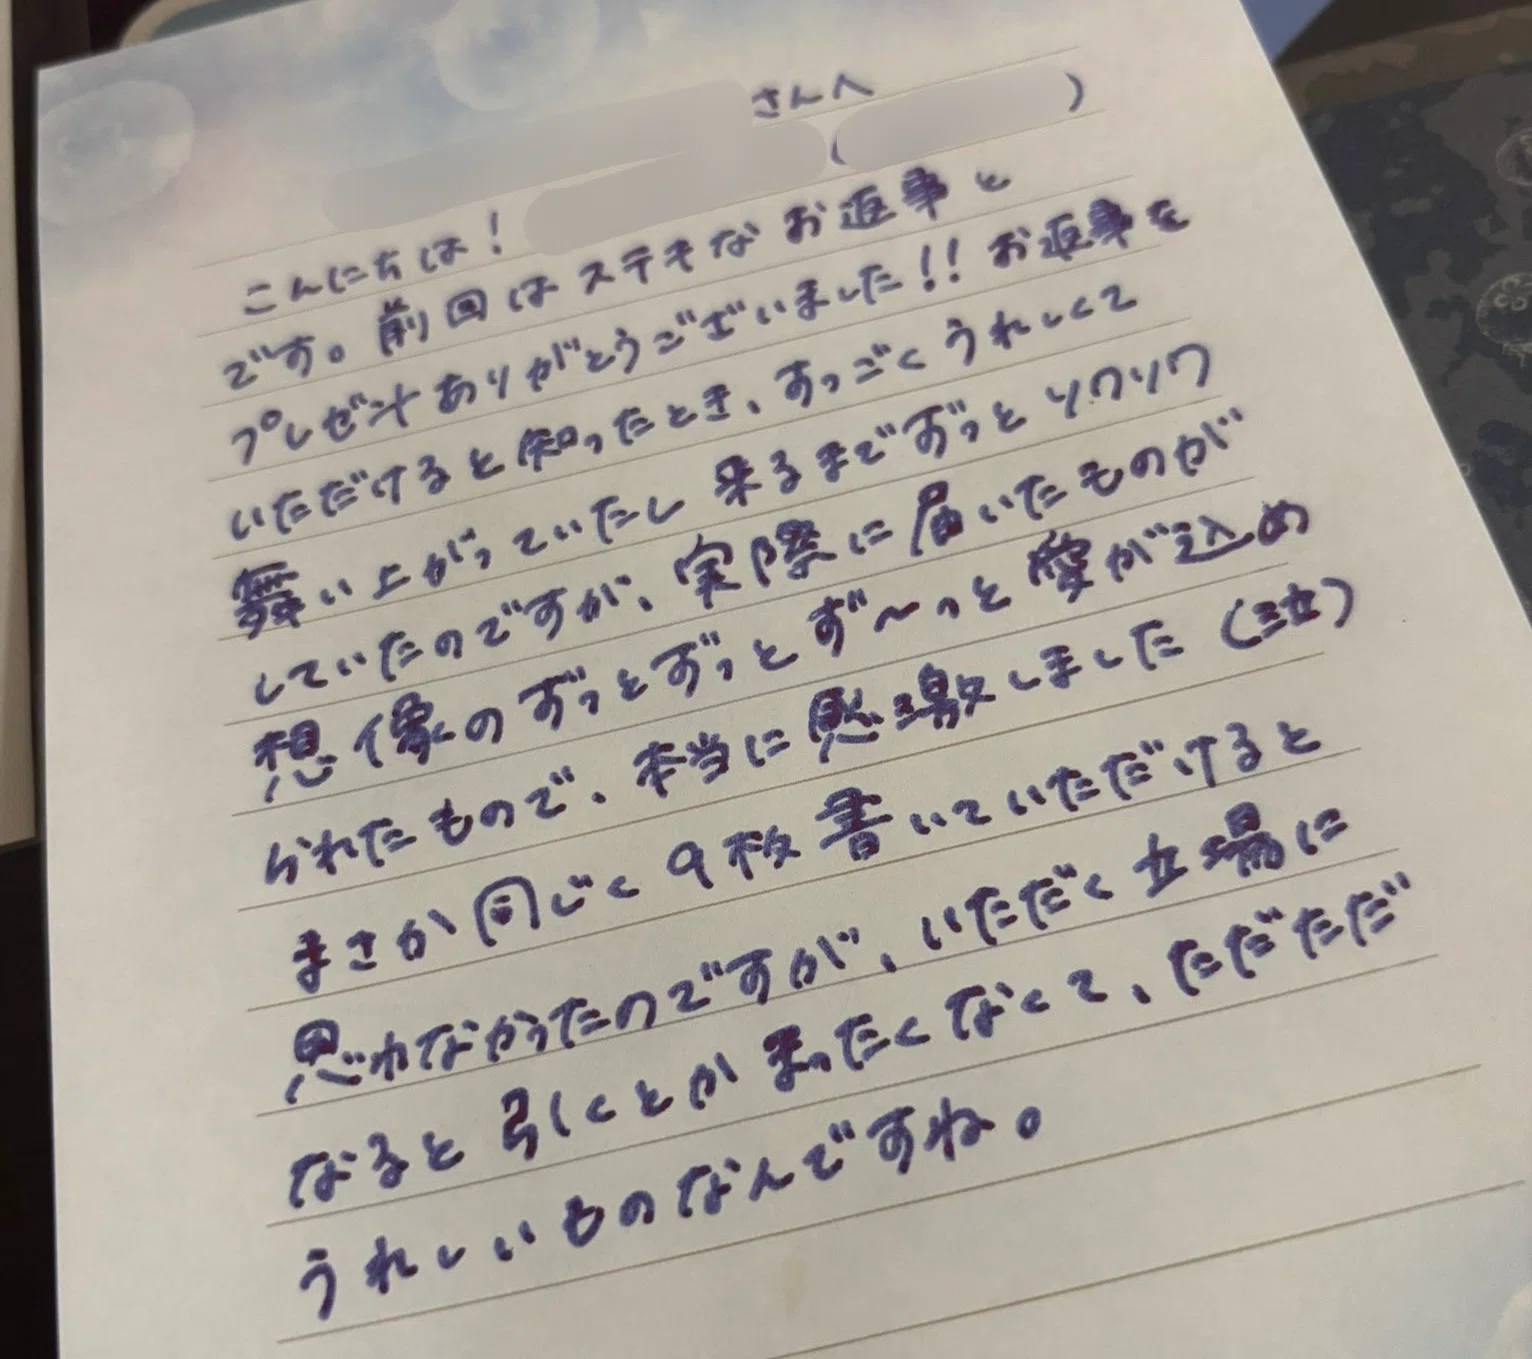 さんへ
こんにちは! ( )
です。前回はステキなお返事と
プレゼントありがとうございました!! お返事を
いただけると知ったとき、すっごくうれしくて
舞い上がっていたし来るまでずっとソワソワ
していたのですが、実際に届いたものが
想像のずっとずっとず〜っと愛が込め
られたもので、本当に感激しました(泣)
まさか同じく9枚書いていただけると
思わなかったのですが、いただく立場に
なると引くとかまったくなくて、ただただ
うれしいものなんですね。